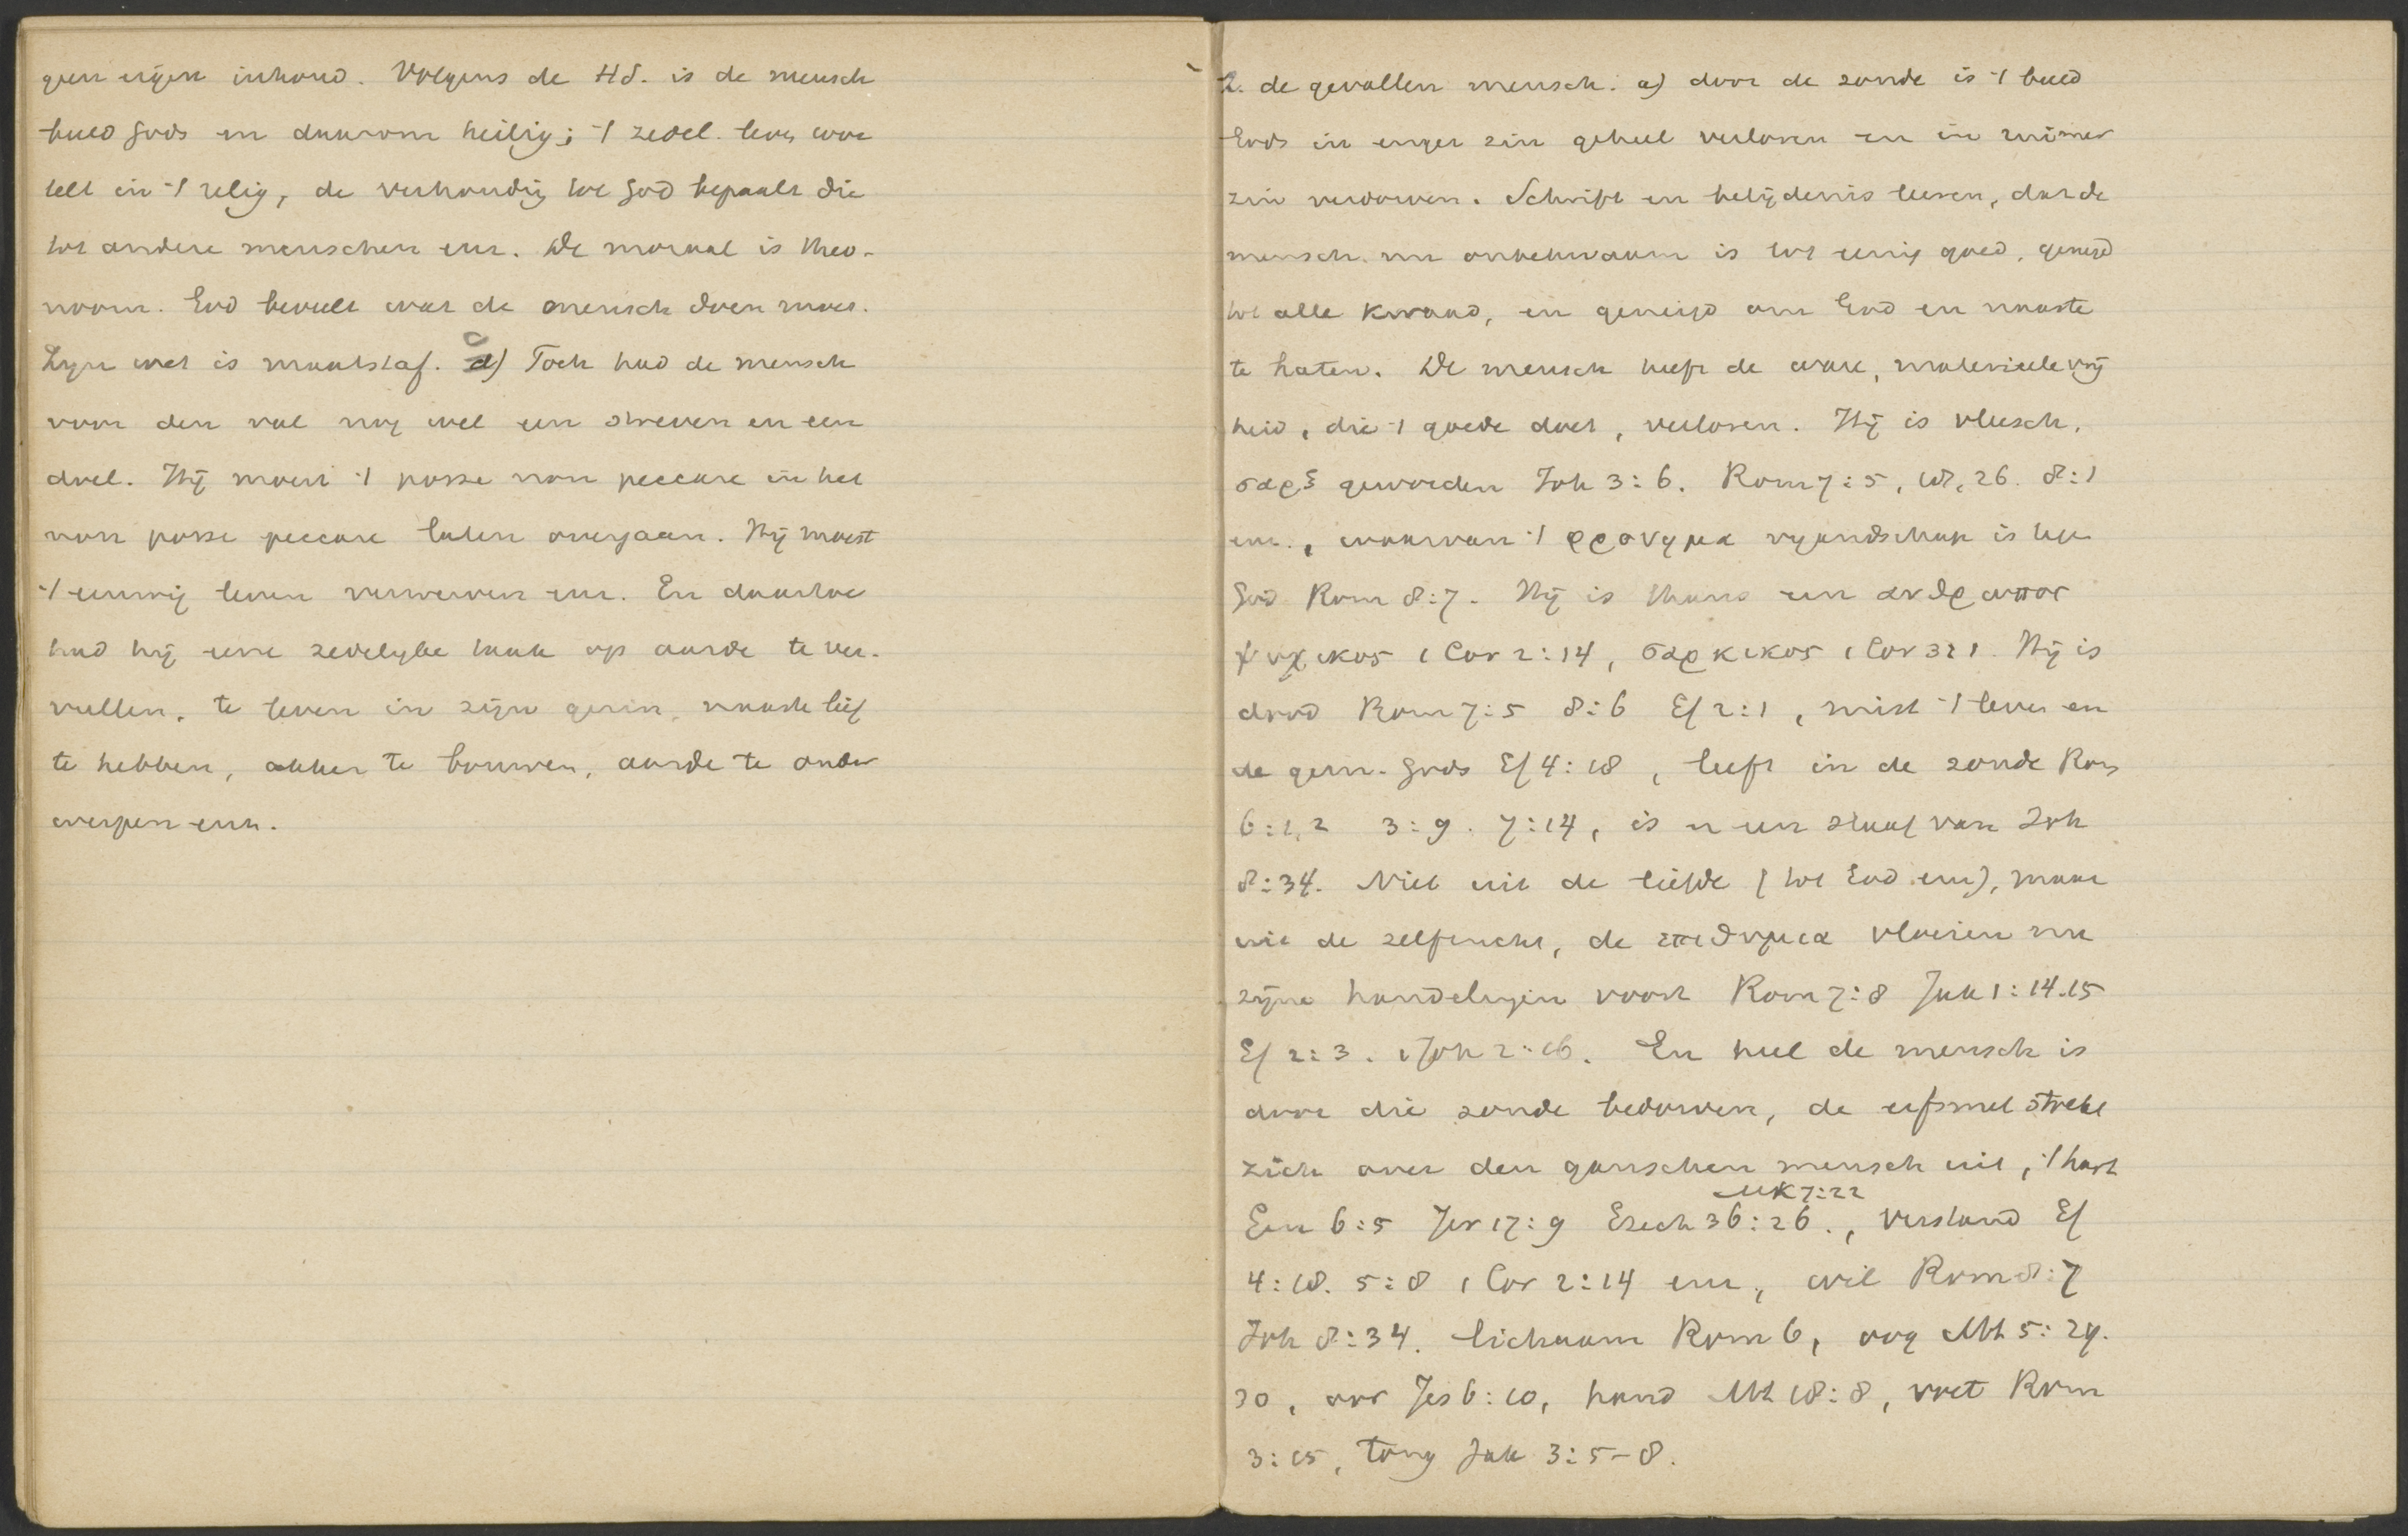 geen eigen inhoud. Volgens de HS. is de mensch
beeld Gods en daarom heilig; 't zedel. leven wor
telt in 't relig, de verhouding tot God bepaalt die
tot andere menschen enz. De moraal is theo-
noom. God beveelt wat de mensch doen moet.
Zijn wet is maatstaf. c) Toch had de mensch
voor den val nog wel een streven en een
doel. Hij moest 't posse non peccare in het
non posse peccare laten overgaan. Hij moest
't eeuwig leven verwerven enz. En daartoe
had hij eene zedelijke taak op aarde te ver-
vullen, te leven in zijn gezin, naaste lief
te hebben, akker te bouwen, aarde te onder
werpen enz.
2. de gevallen mensch. a) door de zonde is 't beeld
Gods in enger zin geheel verloren en in ruimer
zin verdorven. Schrift en belijdenis leeren, dat de
mensch nu onbekwaam is tot eenig goed, geneigd
tot alle kwaad, en geneigd om God en naaste
te haten. De mensch heeft de ware, materieele vrij
heid, die 't goede doet, verloren. Hij is vleesch,
σαρξ geworden Joh 3:6. Rom 7:5, 18, 26. 8:1
enz., waarvan 't φρονημα vijandschap is teg
God Rom 8:7. Hij is thans een ανθρωπος
ψυχικος 1 Cor 2:14, σαρκικος 1 Cor 3:1. Hij is
dood Rom 7:5 8:6 Ef 2:1, mist 't leven en
de gem. Gods Ef 4:18, leeft in de zonde Rom
6:1,2 3:9. 7:14, is er een slaaf van Joh
8:34. Niet uit de liefde (tot God enz), maar
uit de zelfzucht, de επιθυμια vloeien nu
zijne handelingen voort Rom 7:8 Jak 1:14.15
Ef 2:3. 1 Joh 2:16. En heel de mensch is
door die zonde bedorven, de erfsmet strekt
zich over den ganschen mensch uit, 't hart
Mk 7:22
Gen 6:5 Jer 17:9 Ezech 36:26., verstand Ef
4:18. 5:8 1 Cor 2:14 enz, wil Rom 8:7
Joh 8:34. lichaam Rom 6, oog Mt 5:29.
30, oor Jes 6:10, hand Mt 18:8, voet Rom
3:15, tong Jak 3:5-8.